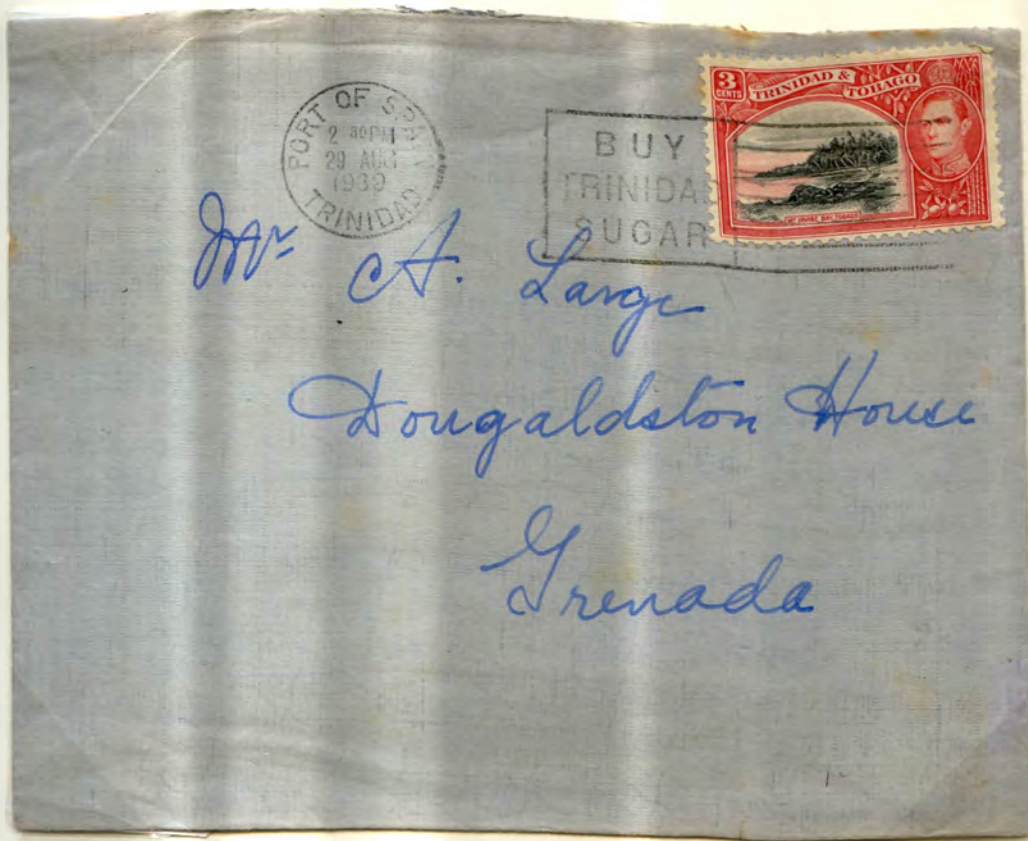 PORT OF SPAIN
2 30 PM
29 AUG
1939
TRINIDAD
BUY
TRINIDAD
SUGAR
3
CENTS
TRINIDAD &
TOBAGO
MT. IRVINE BAY, TOBAGO
Mr A. Large
Dougaldston House
Grenada